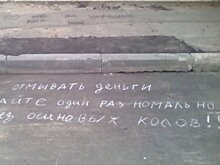 ОТМЫВАТЬ ДЕНЬГИ
АЙТЕ ОДИН РАЗ НОМАЛЬНО
ЕЗ ОСИНОВЫХ КОЛОВ!!!